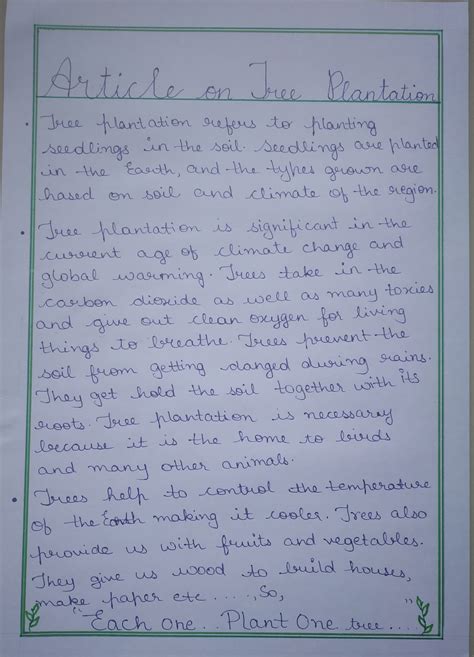 Article on Tree Plantation
• Tree plantation refers to planting
seedlings in the soil. seedlings are planted
in the Earth, and the types grown are
based on soil and climate of the region.
• Tree plantation is significant in the
current age of climate change and
global warming. Trees take in the
carbon dioxide as well as many toxics
and give out clean oxygen for living
things to breathe. Trees prevent the
soil from getting danged during rains.
They get hold the soil together with its
roots. Tree plantation is necessary
because it is the home to birds
and many other animals.
• Trees help to control the temperature
of the Earth making it cooler. Trees also
provide us with fruits and vegetables.
They give us wood to build houses,
make paper etc ....., So,
"Each one.. Plant One tree...."